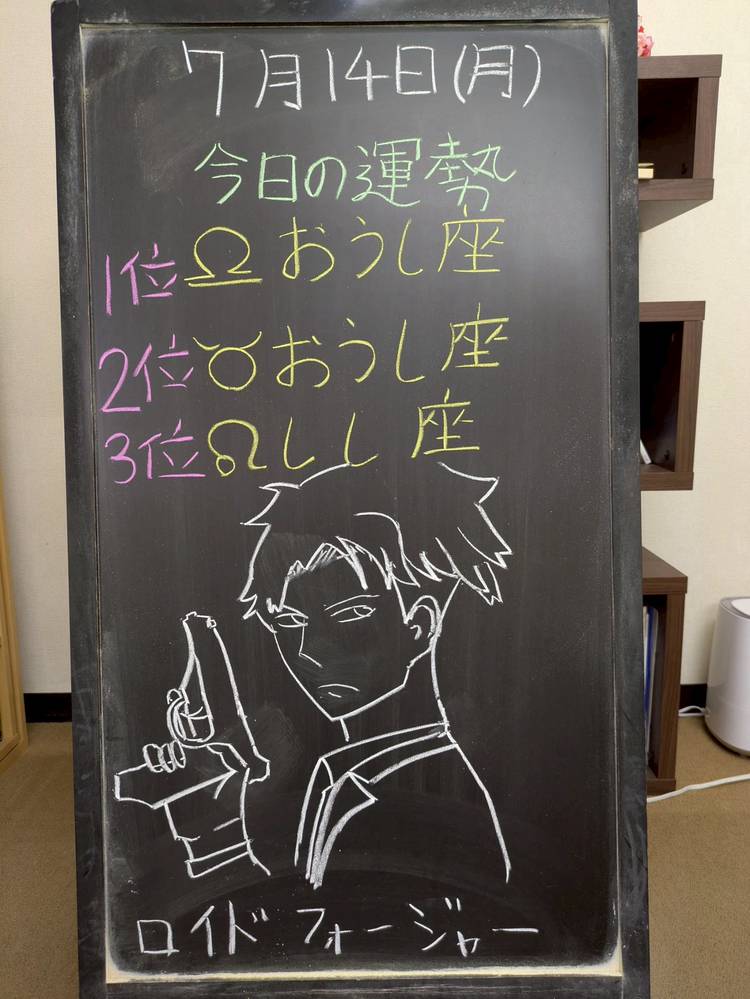 7月14日(月)
今日の運勢
1位♎おうし座
2位♉おうし座
3位♌しし座
ロイド フォージャー